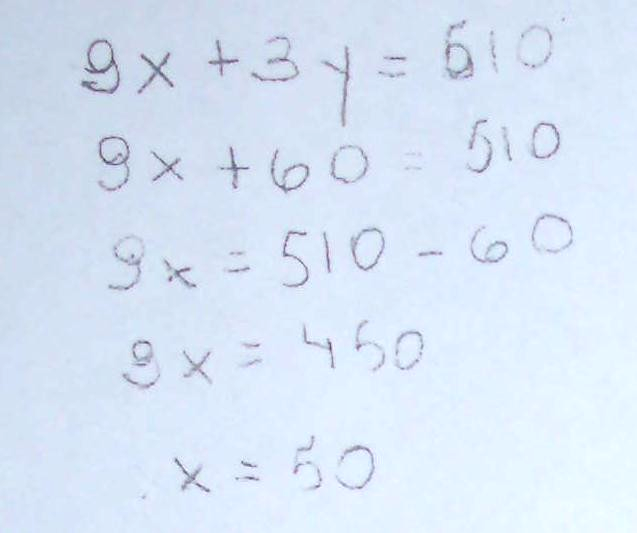 9x + 3y = 510
9x + 60 = 510
9x = 510 - 60
9x = 450
x = 50